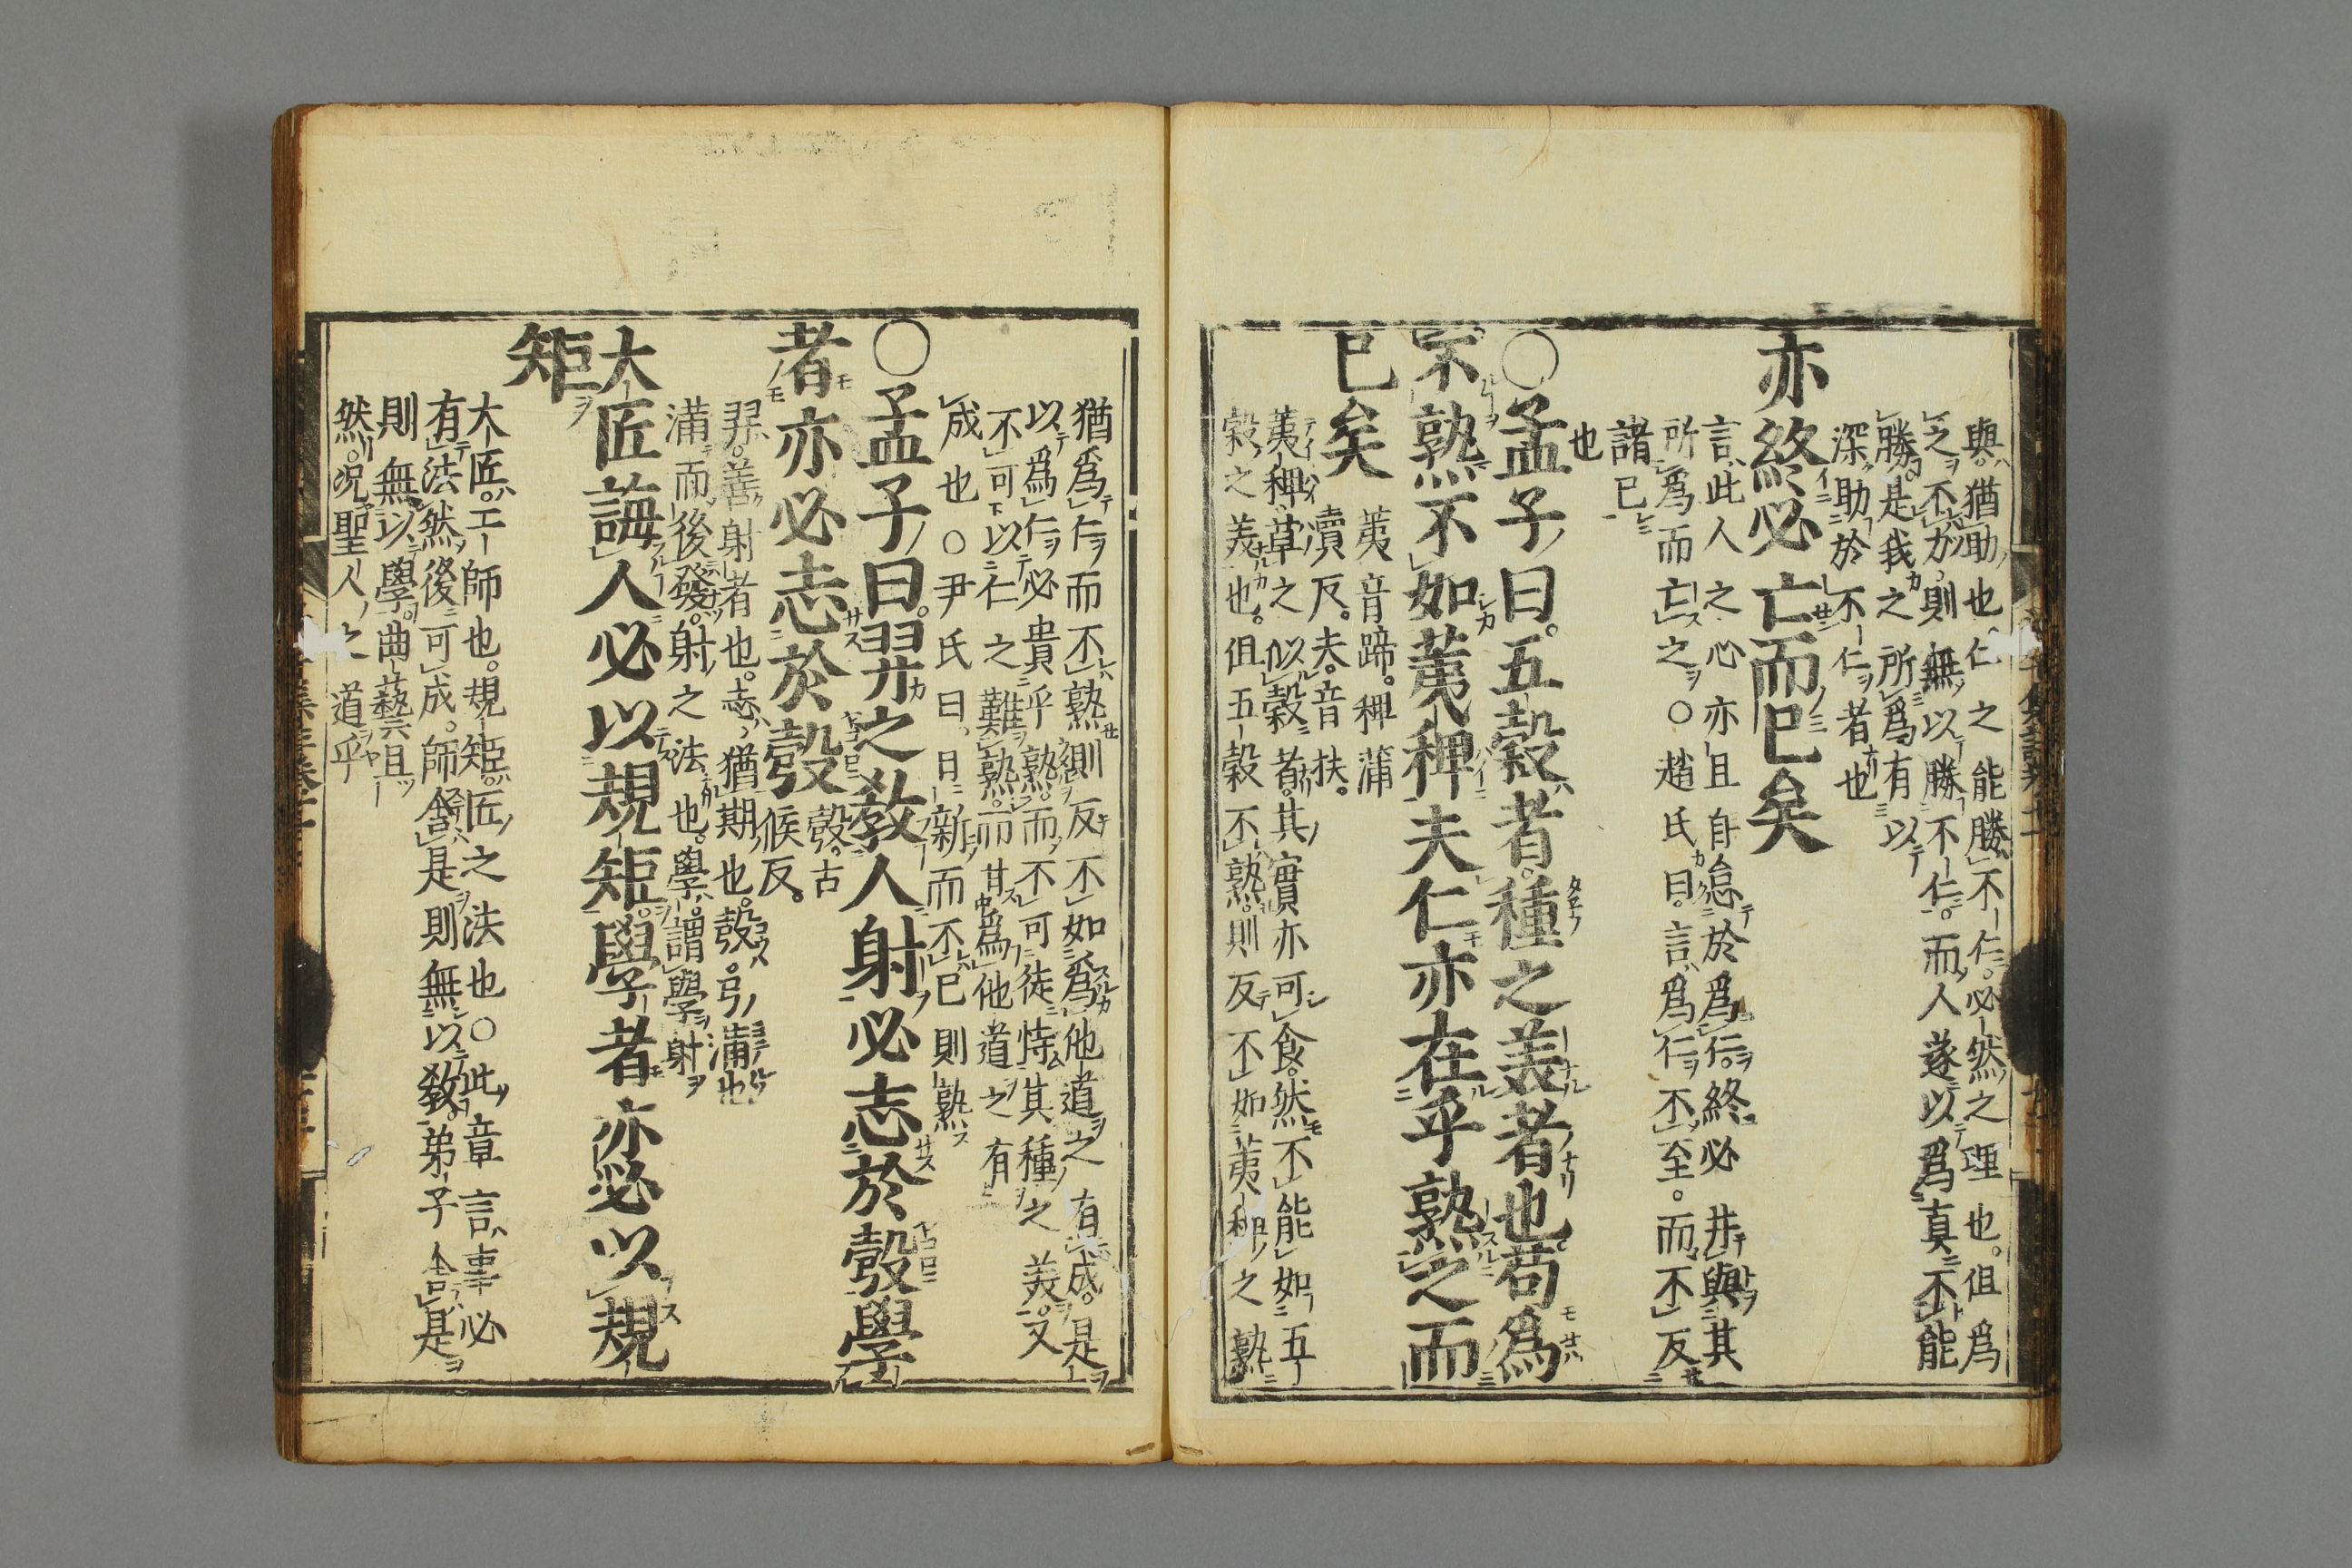 與。猶助也仁之能勝不仁。必然之理也。但爲
之不力。則無以勝不仁。而人遂以爲真不能
勝。是我之所爲有以
深助於不仁者也
亦終必亡而已矣
言此人之心亦且自怠於爲仁。終必并與其
所爲而亡之○趙氏曰。言爲仁不至。而不反
諸已
也
○孟子曰。五穀者。種之美者也苟爲
不熟不如荑稗夫仁亦在乎熟之而
已矣
荑音蹄。稗蒲
瀆反。夫。音扶。
荑稗草之似穀者。其實亦可食。然不能如五
穀之美也。但五穀不熟。則反不如荑稗之熟
猶爲仁而不熟則反不如爲他道之有成。是
以爲仁必貴乎熟。而不可徒恃其種之美。又
不可以仁之難熟。而甘爲他道之有
成也○尹氏曰。日新而不已則熟
○孟子曰。羿之教人射必志於彀學
者亦必志於彀
彀。古
候反。
羿。善射者也。志猶期也。彀。引滿也
滿而後發。射之法也。學。謂學射
大匠誨人必以規矩。學者亦必以規
矩
大匠。工師也。規矩。匠之法也○此章言事必
有法然後可成。師舍是則無以教。弟子舍是
則無以學。曲藝且
然。況聖人之道乎